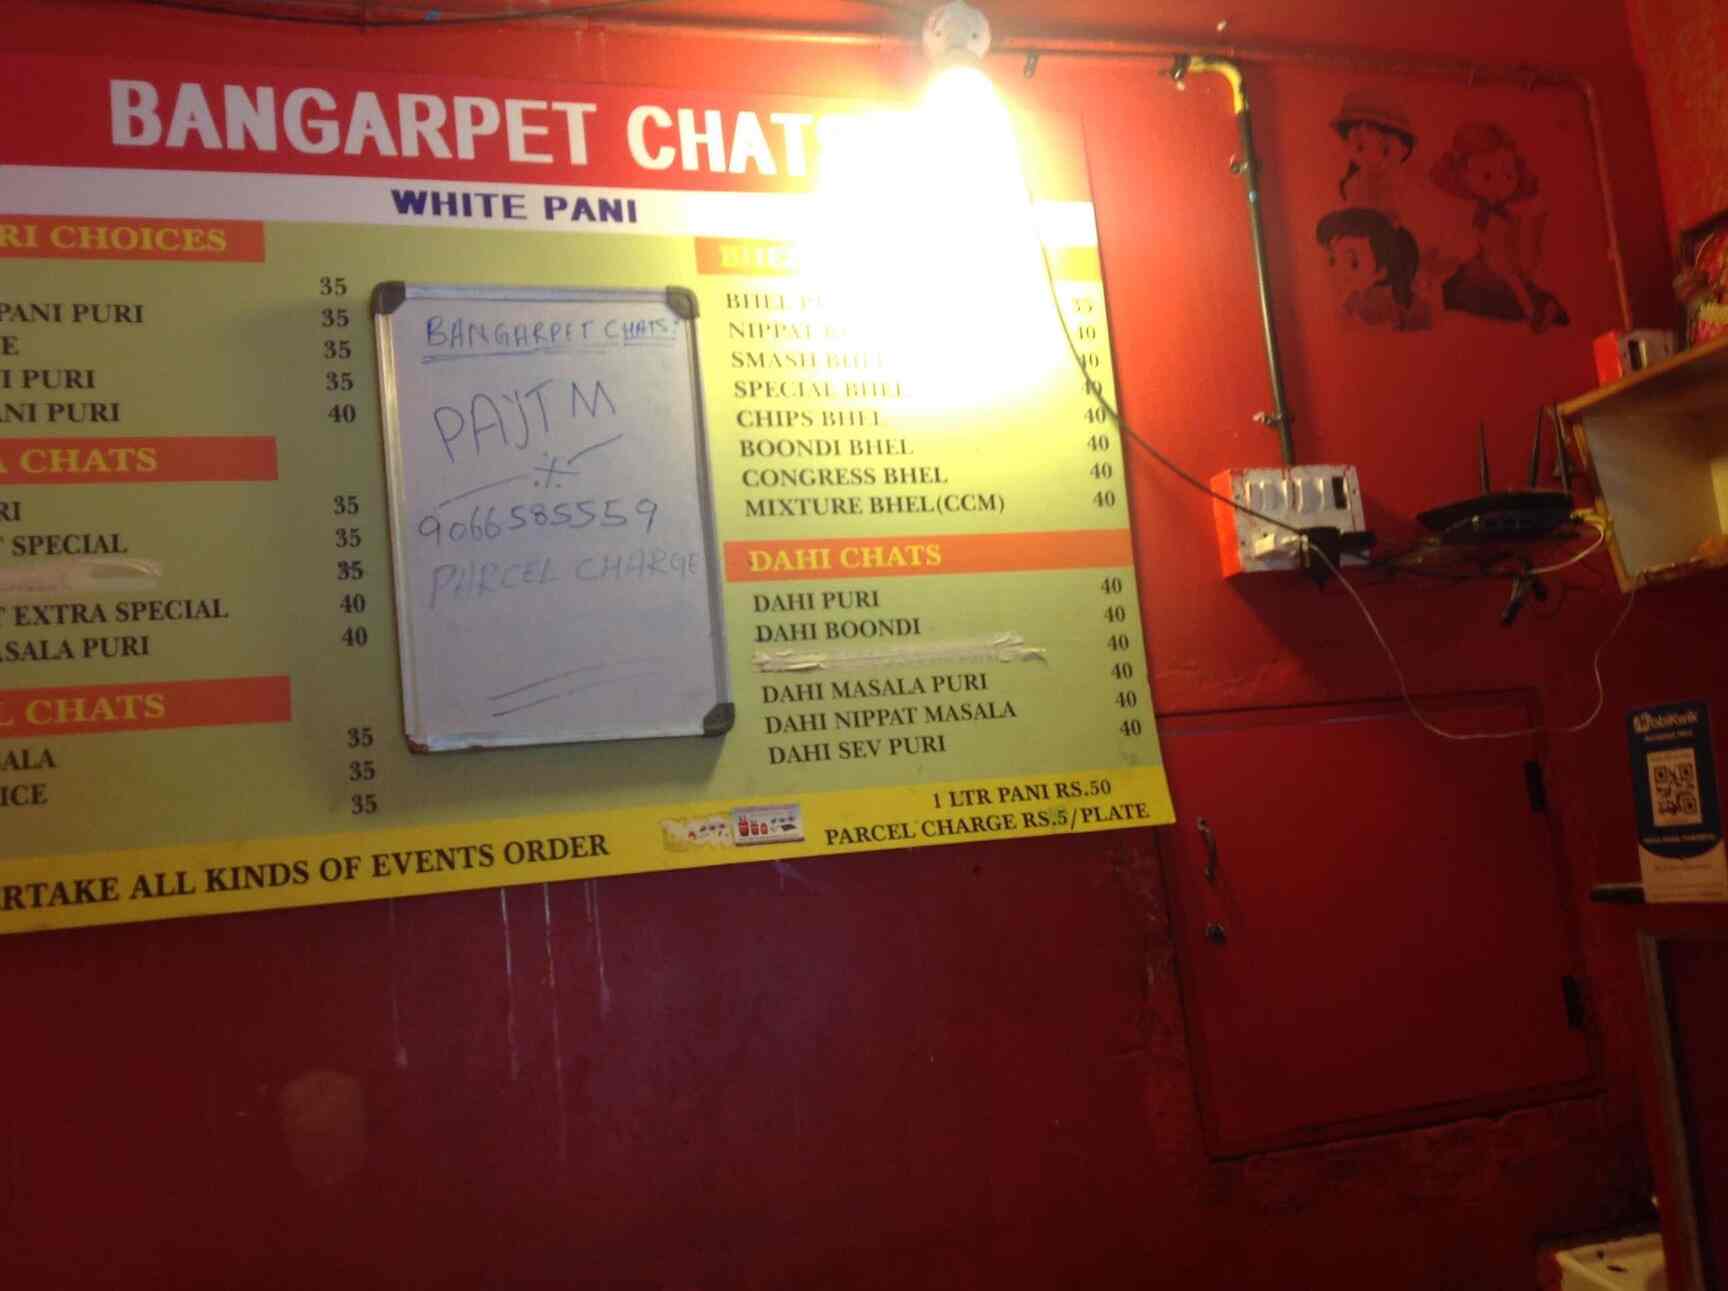 BANGARPET CHATS
WHITE PANI
RI CHOICES
35
PANI PURI 35
E 35
I PURI 35
ANI PURI 40
A CHATS
RI 35
T SPECIAL 35
35
T EXTRA SPECIAL 40
ASALA PURI 40
L CHATS
35
ALA 35
ICE 35
BANGARPET CHATS:
PAYTM
9066585559
PARCEL CHARGE
BHEL 35
NIPPAT 40
SMASH BHEL 40
SPECIAL BHEL 40
CHIPS BHEL 40
BOONDI BHEL 40
CONGRESS BHEL 40
MIXTURE BHEL(CCM) 40
DAHI CHATS
DAHI PURI 40
DAHI BOONDI 40
40
DAHI MASALA PURI 40
DAHI NIPPAT MASALA 40
DAHI SEV PURI 40
1 LTR PANI RS.50
RTAKE ALL KINDS OF EVENTS ORDER
PARCEL CHARGE RS.5/PLATE
MobiKwik